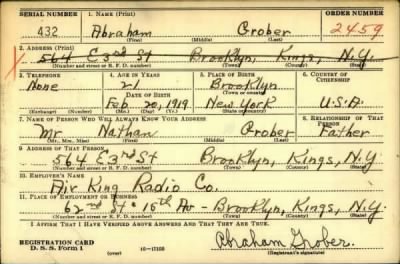 SERIAL NUMBER 1. NAME (Print) ORDER NUMBER
432 Abraham Grober 2459
(First) (Middle) (Last)
2. ADDRESS (Print)
564 E 3rd St Brooklyn, Kings, N.Y.
(Number and street or R. F. D. number) (Town) (County) (State)
3. TELEPHONE 4. AGE IN YEARS 5. PLACE OF BIRTH 6. COUNTRY OF CITIZENSHIP
None 21 Brooklyn
DATE OF BIRTH (Town or county)
Feb 20, 1919 New York U.S.A
(Exchange) (Number) (Mo.) (Day) (Yr.) (State or country)
7. NAME OF PERSON WHO WILL ALWAYS KNOW YOUR ADDRESS 8. RELATIONSHIP OF THAT PERSON
Mr Nathan Grober Father
(Mr., Mrs., Miss) (First) (Middle) (Last)
9. ADDRESS OF THAT PERSON
564 E 3rd St Brooklyn, Kings, N.Y
(Number and street or R. F. D. number) (Town) (County) (State)
10. EMPLOYER'S NAME
Air King Radio Co.
11. PLACE OF EMPLOYMENT OR BUSINESS
62nd St & 15th Av - Brooklyn, Kings, N.Y.
(Number and street or R. F. D. number) (Town) (County) (State)
I AFFIRM THAT I HAVE VERIFIED ABOVE ANSWERS AND THAT THEY ARE TRUE.
REGISTRATION CARD
D. S. S. Form 1 (over) 16—17105 Abraham Grober.
(Registrant's signature)